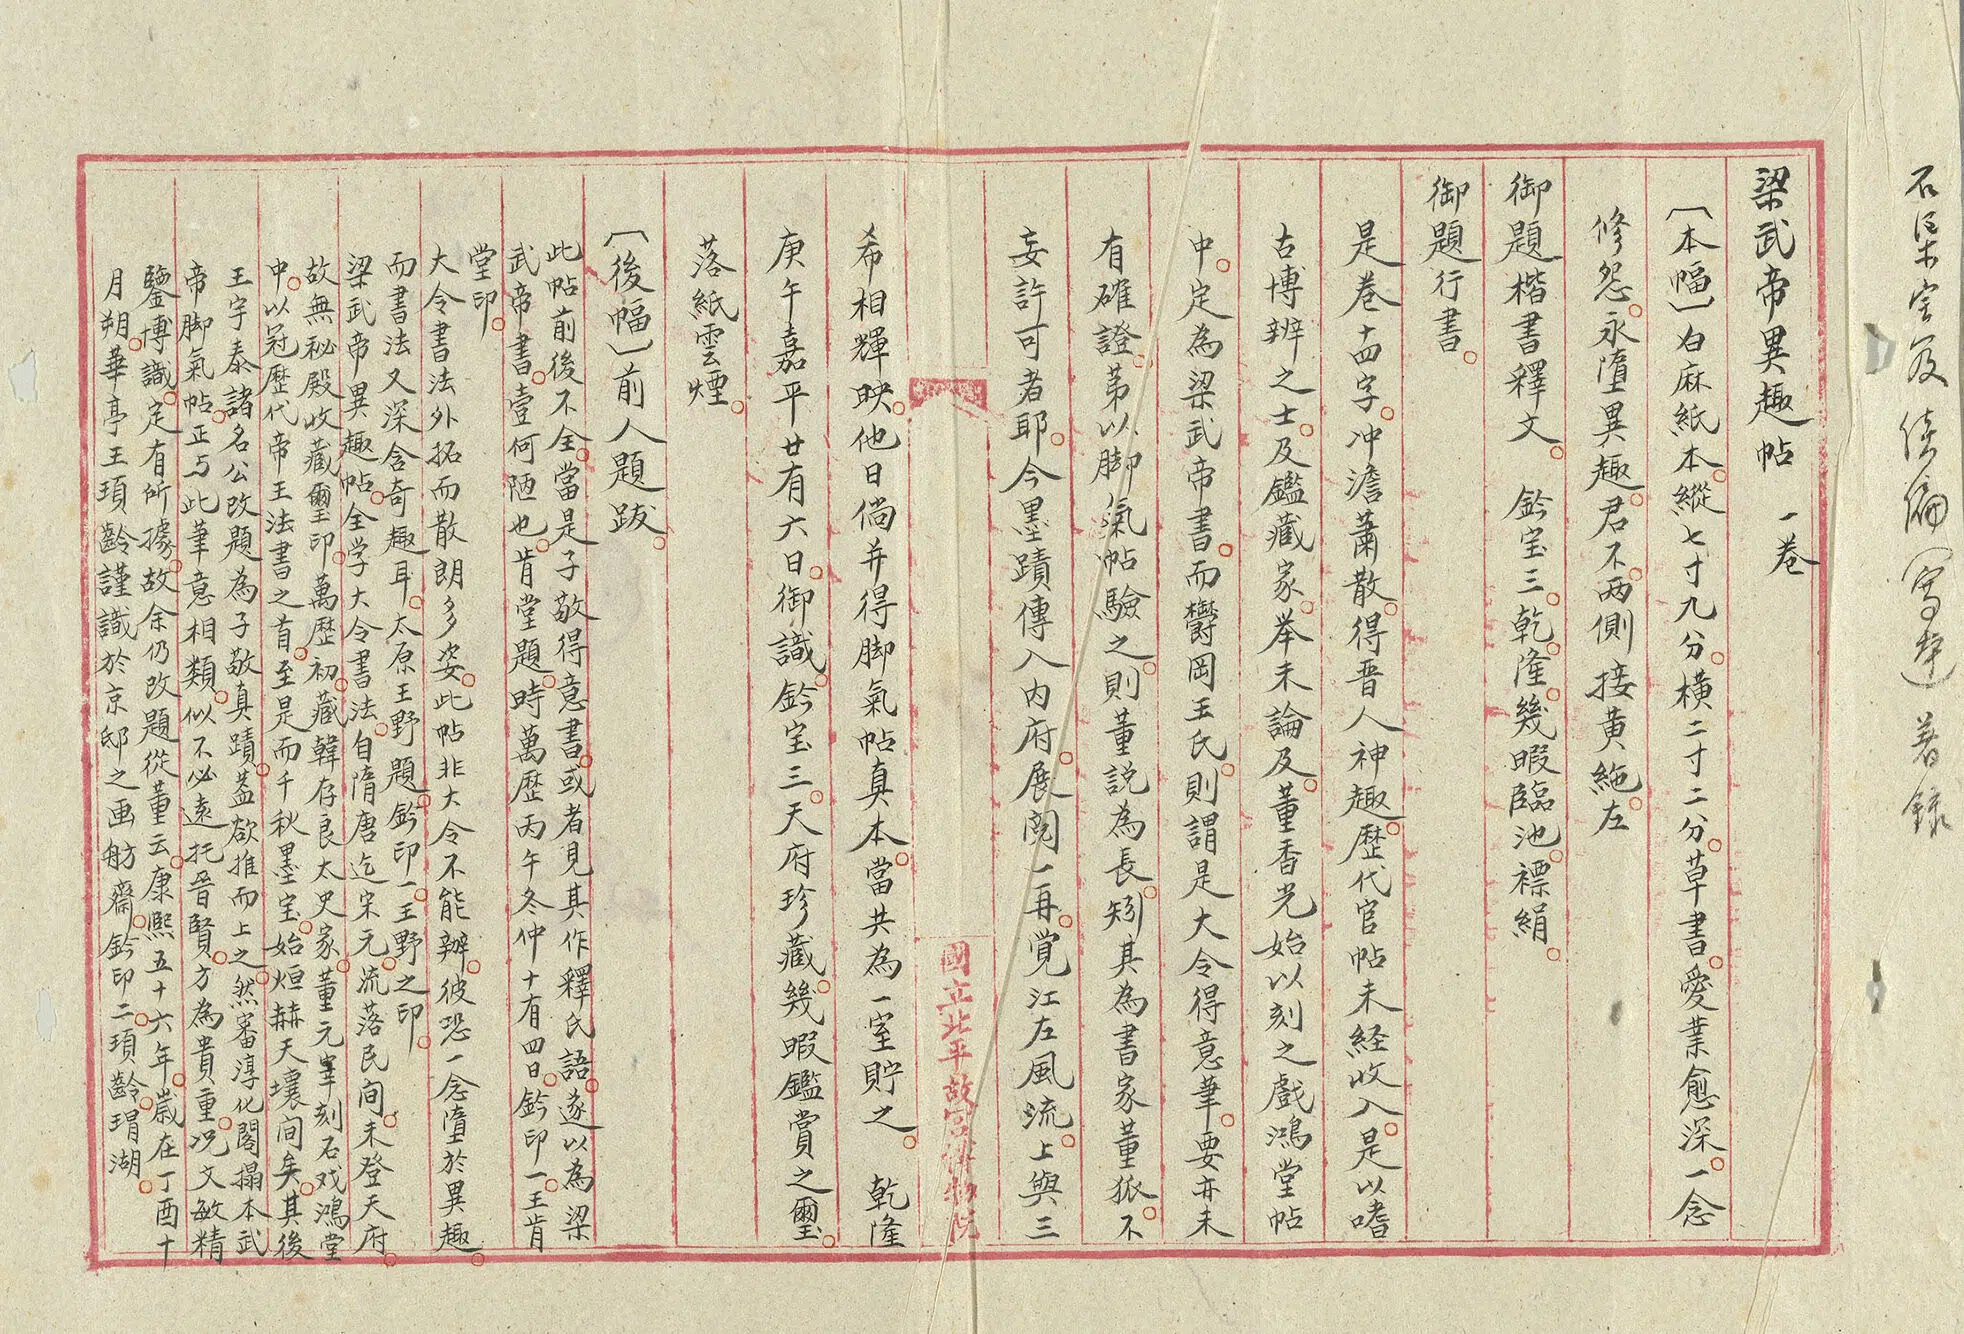 石渠宝笈 續編(寧壽)著錄
梁武帝異趣帖 一卷
〔本幅〕白麻紙本。縱七寸九分。橫二寸二分。草書。愛業愈深。一念
修怨。永墮異趣。君不。两側接黃絁。左
御題楷書釋文。 鈐宝三。乾。隆。幾暇臨池。褾絹。
御題行書。
是卷十四字。冲澹蕭散。得晋人神趣。歷代官帖未経收入。是以嗜
古博辨之士。及鑑藏家。举未論及。董香光始以刻之戲鴻堂帖
中。定為梁武帝書。而欝岡王氏。則謂是大令得意筆。要亦未
有確證。第以脚氣帖驗之。則董説為長。矧其為書家董狐。不
妄許可者耶。今墨蹟傳入内府。展閲一再。覚江左風流。上與三
國立北平故宮博物院
希相輝映。他日倘并得脚氣帖真本。當共為一室貯之。 乾隆
庚午嘉平廿有六日。御識。鈐宝三。天府珍藏。幾暇鑑賞之璽。
落紙雲煙。
〔後幅〕前人題跋。
此帖前後不全。當是子敬得意書。或者見其作釋氏語。遂以為梁
武帝書。壹何陋也。肯堂題。時萬歷丙午冬仲十有四日。鈐印一。王肯
堂印。
大令書法外拓而散朗多姿。此帖非大令不能辦。彼恐一念墮於異趣。
而書法又深含奇趣耳。太原王野題。鈐印一。王野之印。
梁武帝異趣帖。全学大令書法。自隋唐迄宋元。流落民間。未登天府。
故無秘殿收藏璽印。萬歷初。藏韓存良太史家。董元宰刻石戏鴻堂
中。以冠歷代帝王法書之首。至是而千秋墨宝。始烜赫天壤间矣。其後
王宇泰諸名公改題為子敬真蹟。葢欲推而上之。然審淳化閣搨本武
帝脚氣帖。正与此筆意相類。似不必遠托晉賢。方為貴重。况文敏精
鑒博識。定有所據。故余仍改題從董云。康熙五十六年。歲在丁酉十
月朔。華亭王頊齡謹識於京邸之画舫齋。鈐印二。頊齡。瑁湖。